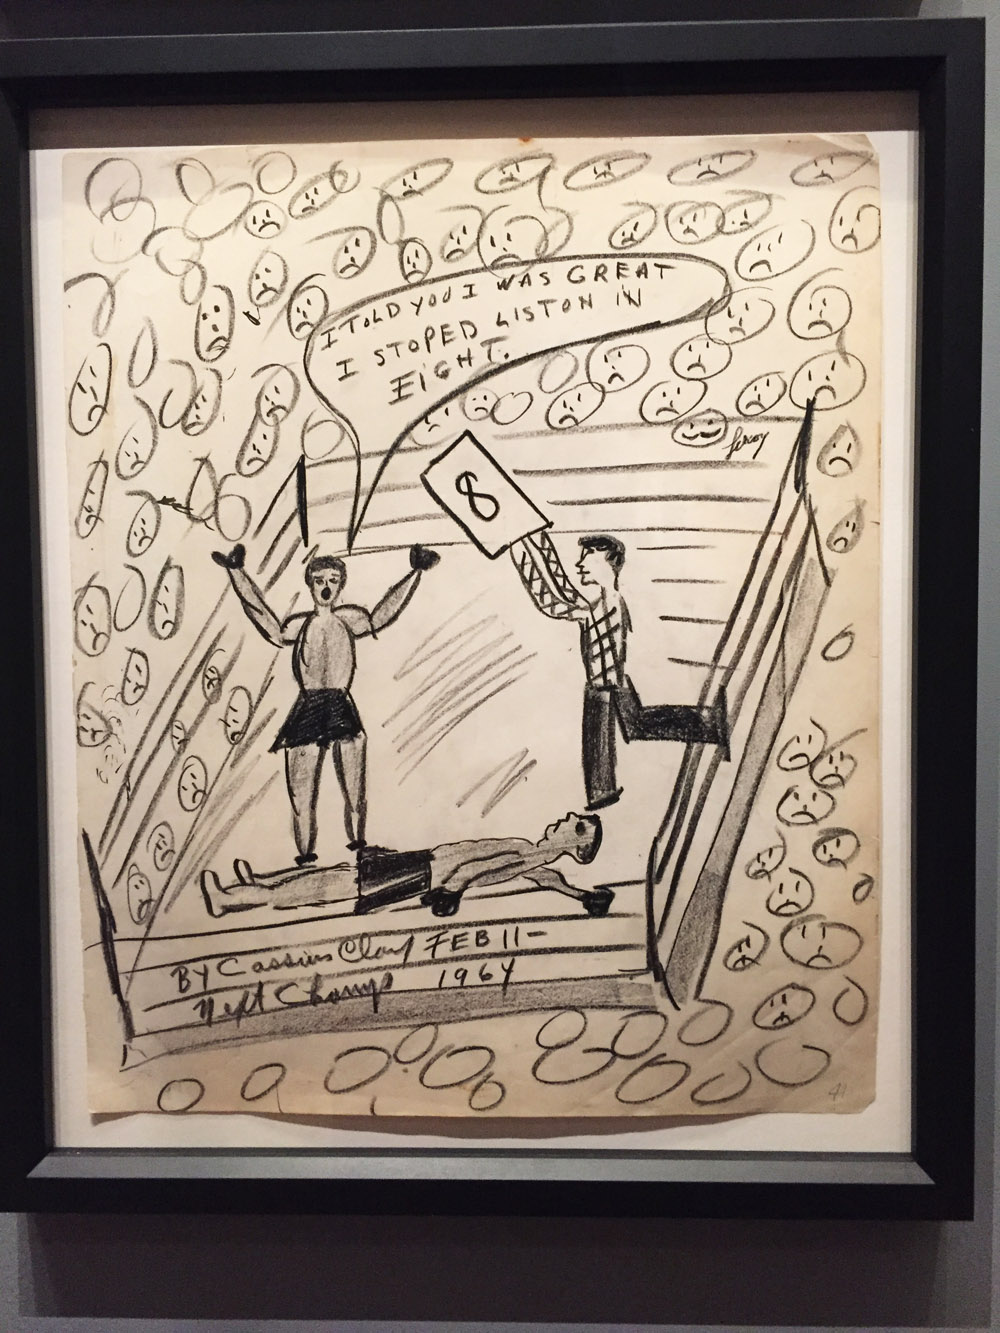 I TOLD YOU I WAS GREAT
I STOPED LISTON IN
EIGHT.
8
Leroy
BY Cassius Clay FEB 11-
Next Champ 1964
41